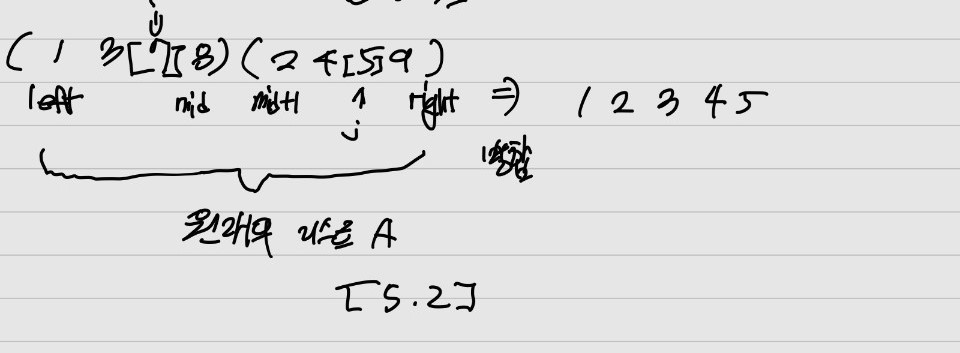 ( 1 3 [7] [8) ( 2 4 [5] 9 )
left mid mid+1 ↑ right ⇒ 1 2 3 4 5
j 병합
원래의 리스트 A
[5.2]